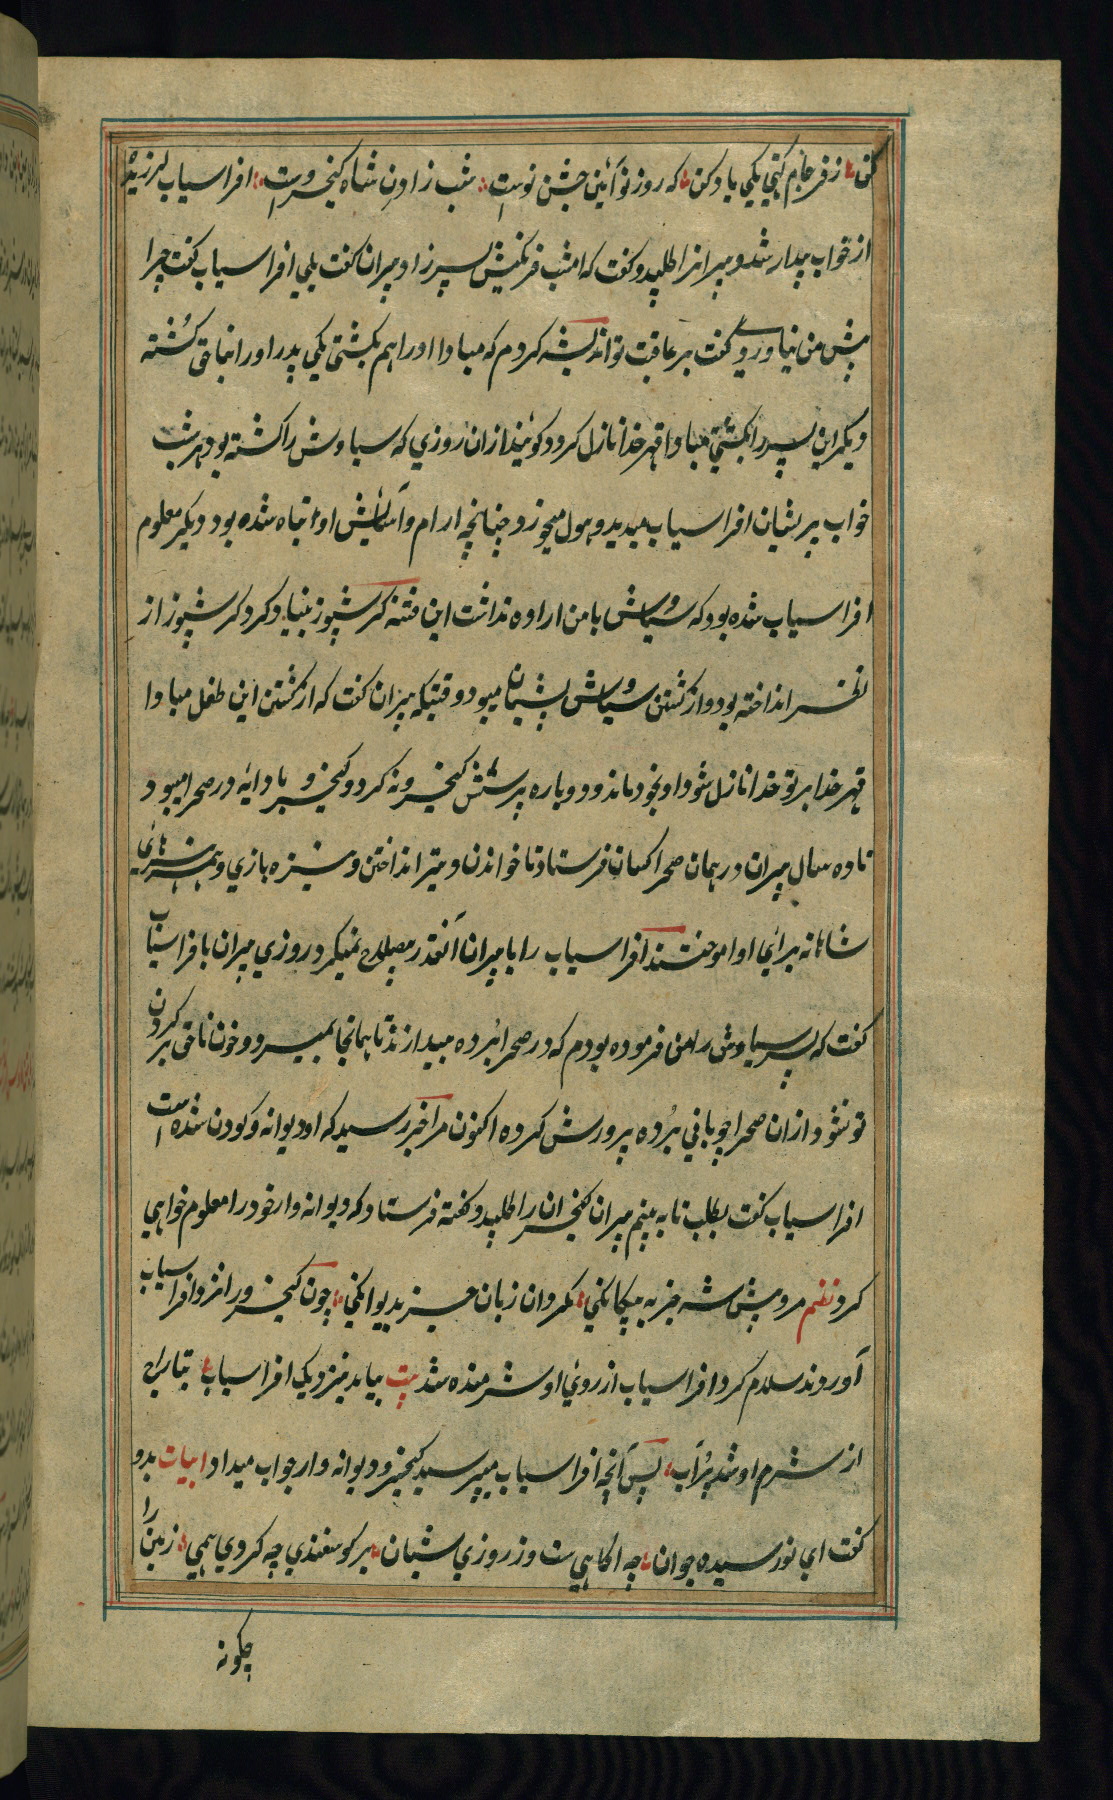 کن ؛ ز فرجام گیتی یکی یاد کن ؛ که روز نو آئین جشن نوست ؛ شب زادن شاه کیخسروست ؛ افراسیاب لرزیده
از خواب بیدار شد و پیرانرا طلبید و گفت که امشب فرنگیش پسر زاد پیران گفت بلی افراسیاب گفت چرا
پیش من نیاوردی گفت بر عاقبت تو اندیشه کردم که مبادا او را هم بکشی یکی پدر او را بناحق کشته
دیگر این پسر را بکشی مبادا قهر خدا نازل کردد گویند ازان روزی که سیاوش را کشته بود هر شب
خواب پریشان افراسیاب میدید و هول میخورد چنانچه ارام و آسایش او تباه شده بود دیگر معلوم
افراسیاب شده بود که سیاوش با من اراده نداشت این فتنه کرشیوز بنیاد کرد کرشیوز از
نظر انداخته بود و از کشتن سیاوش پشیمان میبود وقتیکه پیران گفت که از کشتن این طفل مبادا
قهر خدا بر تو خدا نازل شود او بخود ماند و دوباره پرسش کیخسرو نه کرد و کیخسرو با دایه در صحرا میبود
تا ده سال پیران در همان صحرا کسان فرستاد تا خواندن و تیر انداختن و نیزه بازی و هنر های
شاهانه برای او اموختند افراسیاب را با پیران آنقدر مصلاح نمیکرد روزی پیران با افراسیاب
گفت که پسر سیاوش را من فرموده بودم که در صحرا برده میندازند تا همانجا بمیرد و خون ناحق بر گردن
تو نشود ازان صحرا چوپانی برده پرورش کرده اکنون مرا خبر رسید که او دیوانه و کودن شده است
افراسیاب گفت بطلب تا به بینم پیران کیخسران را طلبید و گفته فرستاد که دیوانه وار خود را معلوم خواهی
کرد نظم مرو پیش شه جز به بیگانگی ؛ مگردان زبان جز بدیوانگی ؛ چون کیخسرو را نزد افراسیاب
آوردند سلام کرد افراسیاب از روی او شرمنده شد بیت بیامد بنزدیک افراسیاب ؛ نیا را رخ
از شرم او شد پر آب ؛ پس آنچه افراسیاب میپرسید کیخسرو دیوانه وار جواب میداد ابیات بدو
گفت ای نورسیده جوان ؛ چه اگاهی ست وز روزی شبان ؛ بر گوسفندی چه کردی همی ؛ زمین را
چگونه